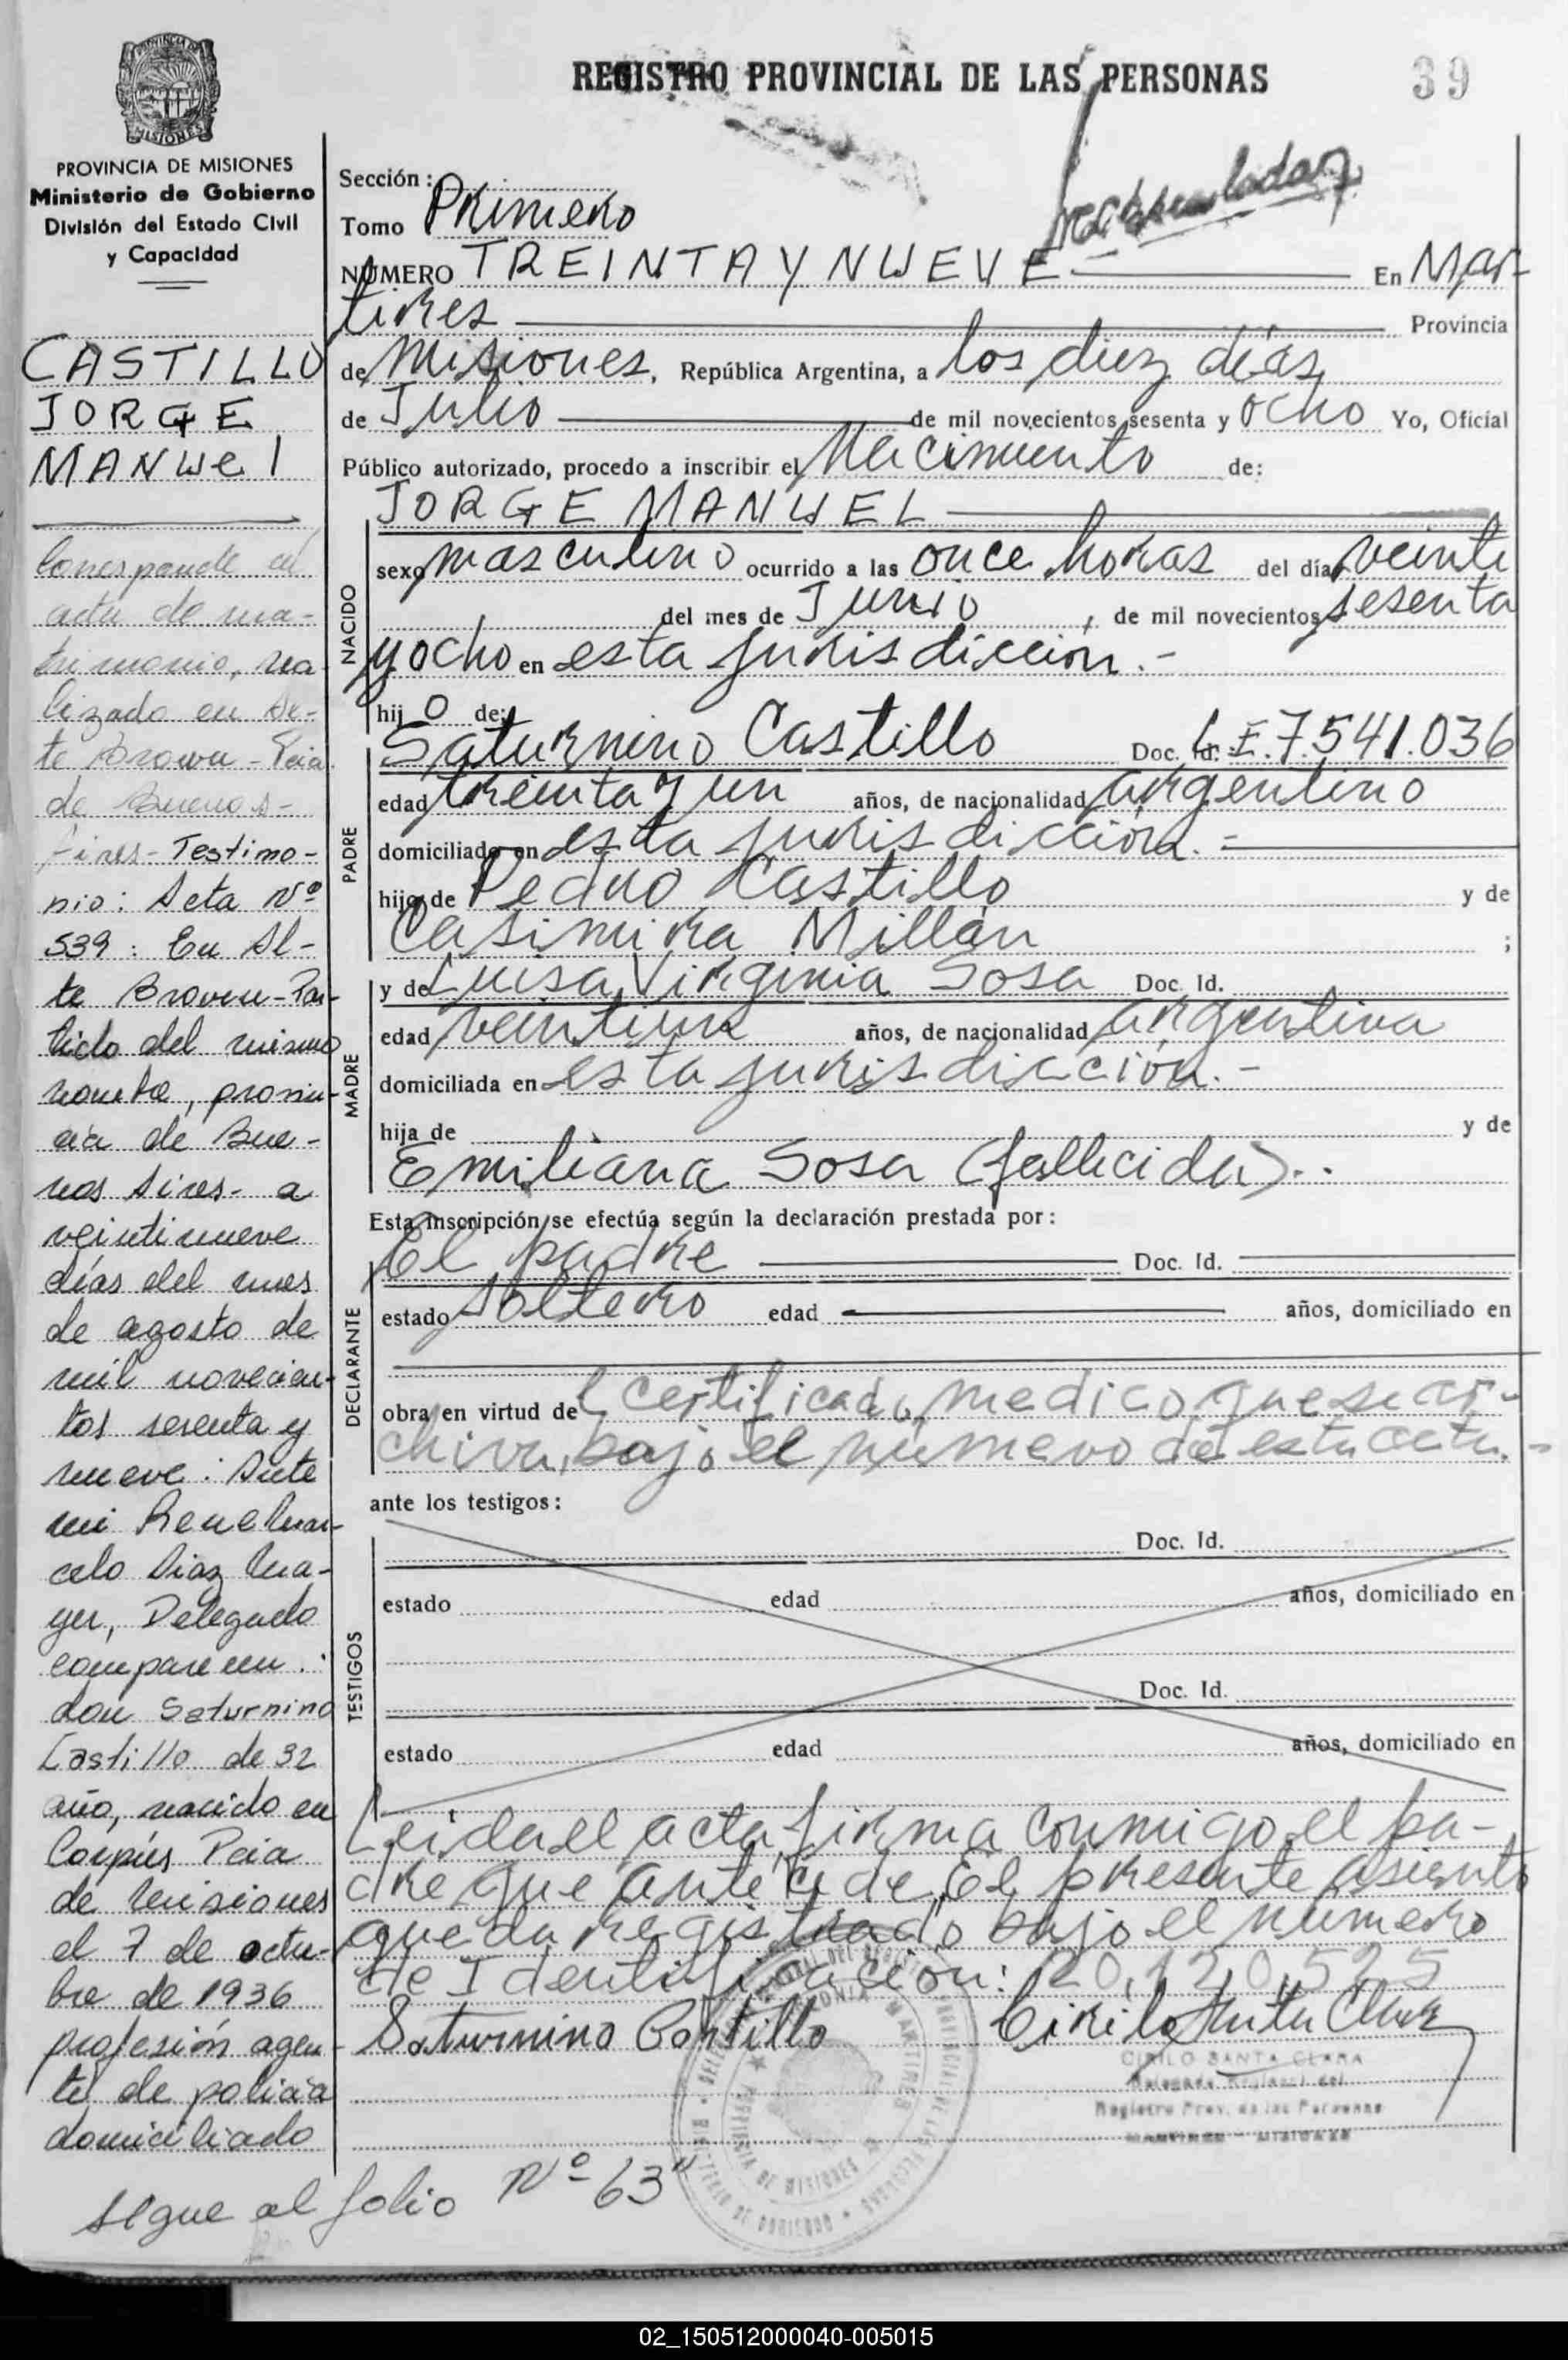 REGISTRO PROVINCIAL DE LAS PERSONAS
39
PROVINCIA DE MISIONES
Ministerio de Gobierno
División del Estado Civil
y Capacidad
CASTILLO
JORGE
MANUel
Corresponde al
acta de ma-
trimonio, rea
lizado en Al-
te Brown - Pcia
de Buenos-
Aires - Testimo-
nio: Acta Nº
539: En Al-
te Brown - Par-
tido del mismo
nombre, provin-
cia de Bue-
nos Aires - a
veintinueve
días del mes
de agosto de
mil novecien-
tos sesenta y
nueve: Ante
mi Rene Mar-
celo Diaz Ma-
yer, Delegado
comparecen:
don Saturnino
Castillo de 32
año, nacido en
Corpús Pcia
de Misiones
el 7 de octu-
bre de 1936
profesión agen-
te de policía
domiciliado
Sección:
Tomo Primero
NÚMERO TREINTA Y NUEVE En Mar-
tires Provincia
de Misiones, República Argentina, a los diez días
de Julio de mil novecientos sesenta y ocho Yo, Oficial
Público autorizado, procedo a inscribir el Nacimiento de:
JORGE MANUEL
NACIDO
sexo masculino ocurrido a las once horas del día veinte
del mes de Junio, de mil novecientos sesenta
y ocho en esta jurisdiccion.-
hijo de:
PADRE
Saturnino Castillo Doc. Id. L.E. 7.541.036
edad treinta y un años, de nacionalidad argentino
domiciliado en esta jurisdicción.=
hijo de Pedro Castillo y de
Casimira Millán ;
MADRE
y de Luisa Virginia Sosa Doc. Id.
edad veintiun años, de nacionalidad argentina
domiciliada en esta jurisdicción.-
hija de y de
Emiliana Sosa (fallecida)..
Esta inscripción se efectúa según la declaración prestada por:
DECLARANTE
El padre Doc. Id.
estado soltero edad años, domiciliado en
obra en virtud del certificado medico que se ar-
chiva, bajo el número de esta acta.-
ante los testigos:
TESTIGOS
Doc. Id.
estado edad años, domiciliado en
Doc. Id.
estado edad años, domiciliado en
Leida el acta firma conmigo el pa-
dre que antecede, El presente asiento
queda registrado bajo el número
de Identificación: 20.120.525
Saturnino Castillo Cirilo Santa Clara
CIRILO SANTA CLARA
Delegado
Registro Prov. de las Personas
MARTIRES - MISIONES
sigue al folio Nº 63"
02_150512000040-005015